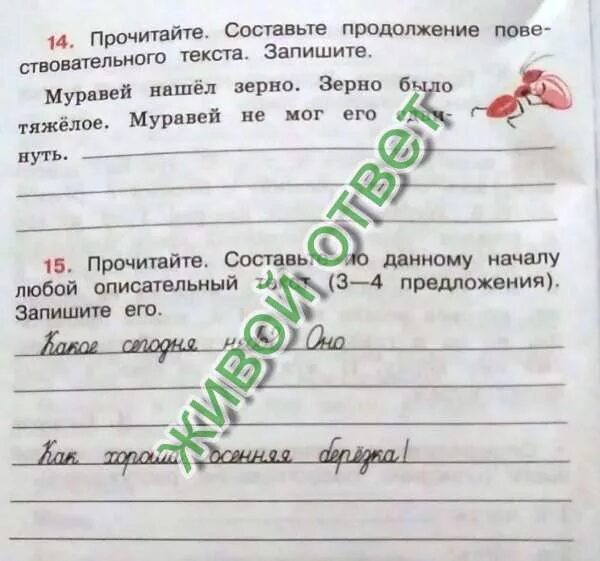 14. Прочитайте. Составьте продолжение пове-
ствовательного текста. Запишите.
Муравей нашёл зерно. Зерно было
тяжёлое. Муравей не мог его сдви-
нуть.
15. Прочитайте. Составьте по данному началу
любой описательный текст (3—4 предложения).
Запишите его.
Какое сегодня небо! Оно
Как хороша осенняя берёзка!
ЖИВОЙ ОТВЕТ